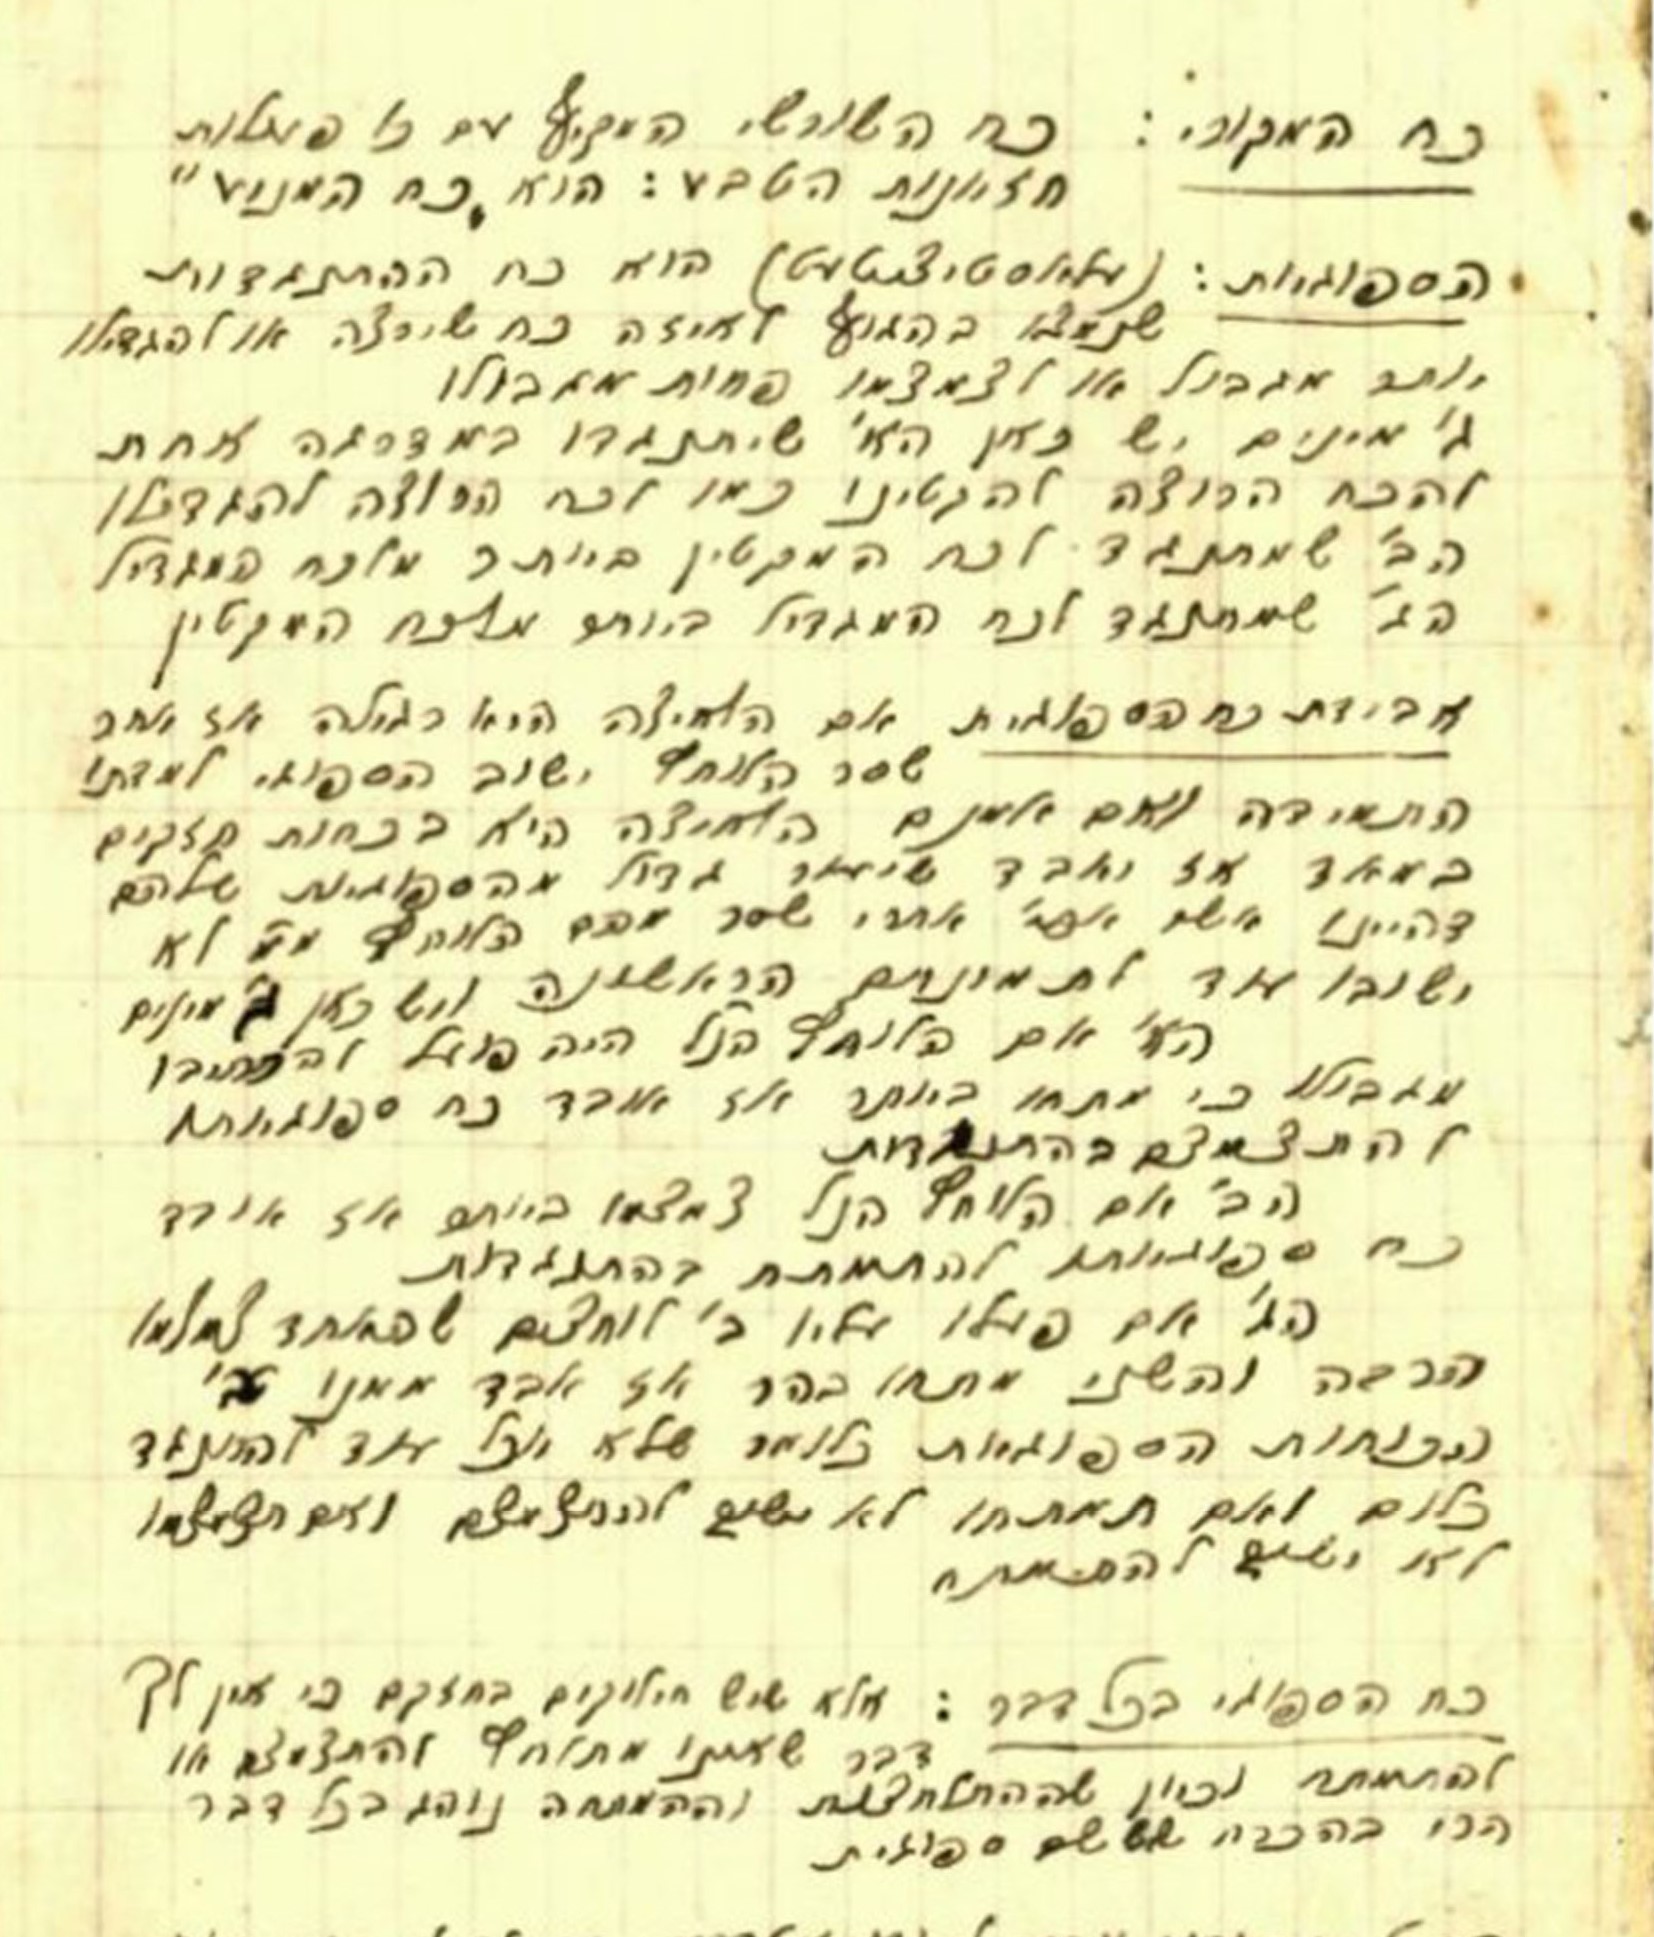 כח המקורי: כח השורשי המקיף עם כו פעלות
חזיונות הטבע: הוא „כח המניע"
הספוגיות: (עלאסטיציטעט) הוא כח ההתנגדות
שנמצא בהגוף לאיזה כח שירצה או להגדילו
יותר מגבול או לצמצמו פחות מגבולו
ג' מינים יש כאן הא' שיתנגדו במדרגה אחת
להכח הרוצה להקטינו כמו לכח הרוצה להגדילו
הב' שמתנגד לכח המקטין ביותר מלכח המגדיל
הג' שמתנגד לכח המגדיל ביותר מלכח המקטין
אבידת כח הספוגית אם הלחיצה היא רגילה אז אחר
שסר הלוחץ ישוב הספוגי למדתו
התמידה ואם אמנם הלחיצה היא בכחות חזקים
במאד אז יאבד שיעור גדול מהספוגיות שלהם
דהיינו אשר אפי' אחרי שסר מהם הלוחץ מ"מ לא
ישובו עוד לתמונתם הראשונה ויש כאן ג' מינים
הא' אם הלוחץ הנ"ל היה פועל להרחיבו
מגבולו כי מתחו ביותר אז אובד כח ספוגיותו
להתצמצם בהתנגדות
הב' אם הלוחץ הנ"ל צמצמו ביותר אז אובד
כח ספוגיותו להתמתח בהתנגדות
הג' אם פעלו עליו ב' לוחצים שהאחד צמצמו
הרבה והשני מתחו בהר אז אבד ממנו ב'
הכוחות הספוגיות כלומר שלא יוכל עוד להתנגד
כלום ואם תמתחו לא ישוב להתצמצם ואם תצמצמו
לא ישוב להתמתח
כח הספוגי בכל דבר: אלא שיש חילוקים בחזקם כי אין לך
דבר שאינו מתלחץ להתצמצם או
להתמתח וכיון שההתלחצות וההמתחה נוהג בכל דבר
הרי בהכרח שיש שם ספוגית